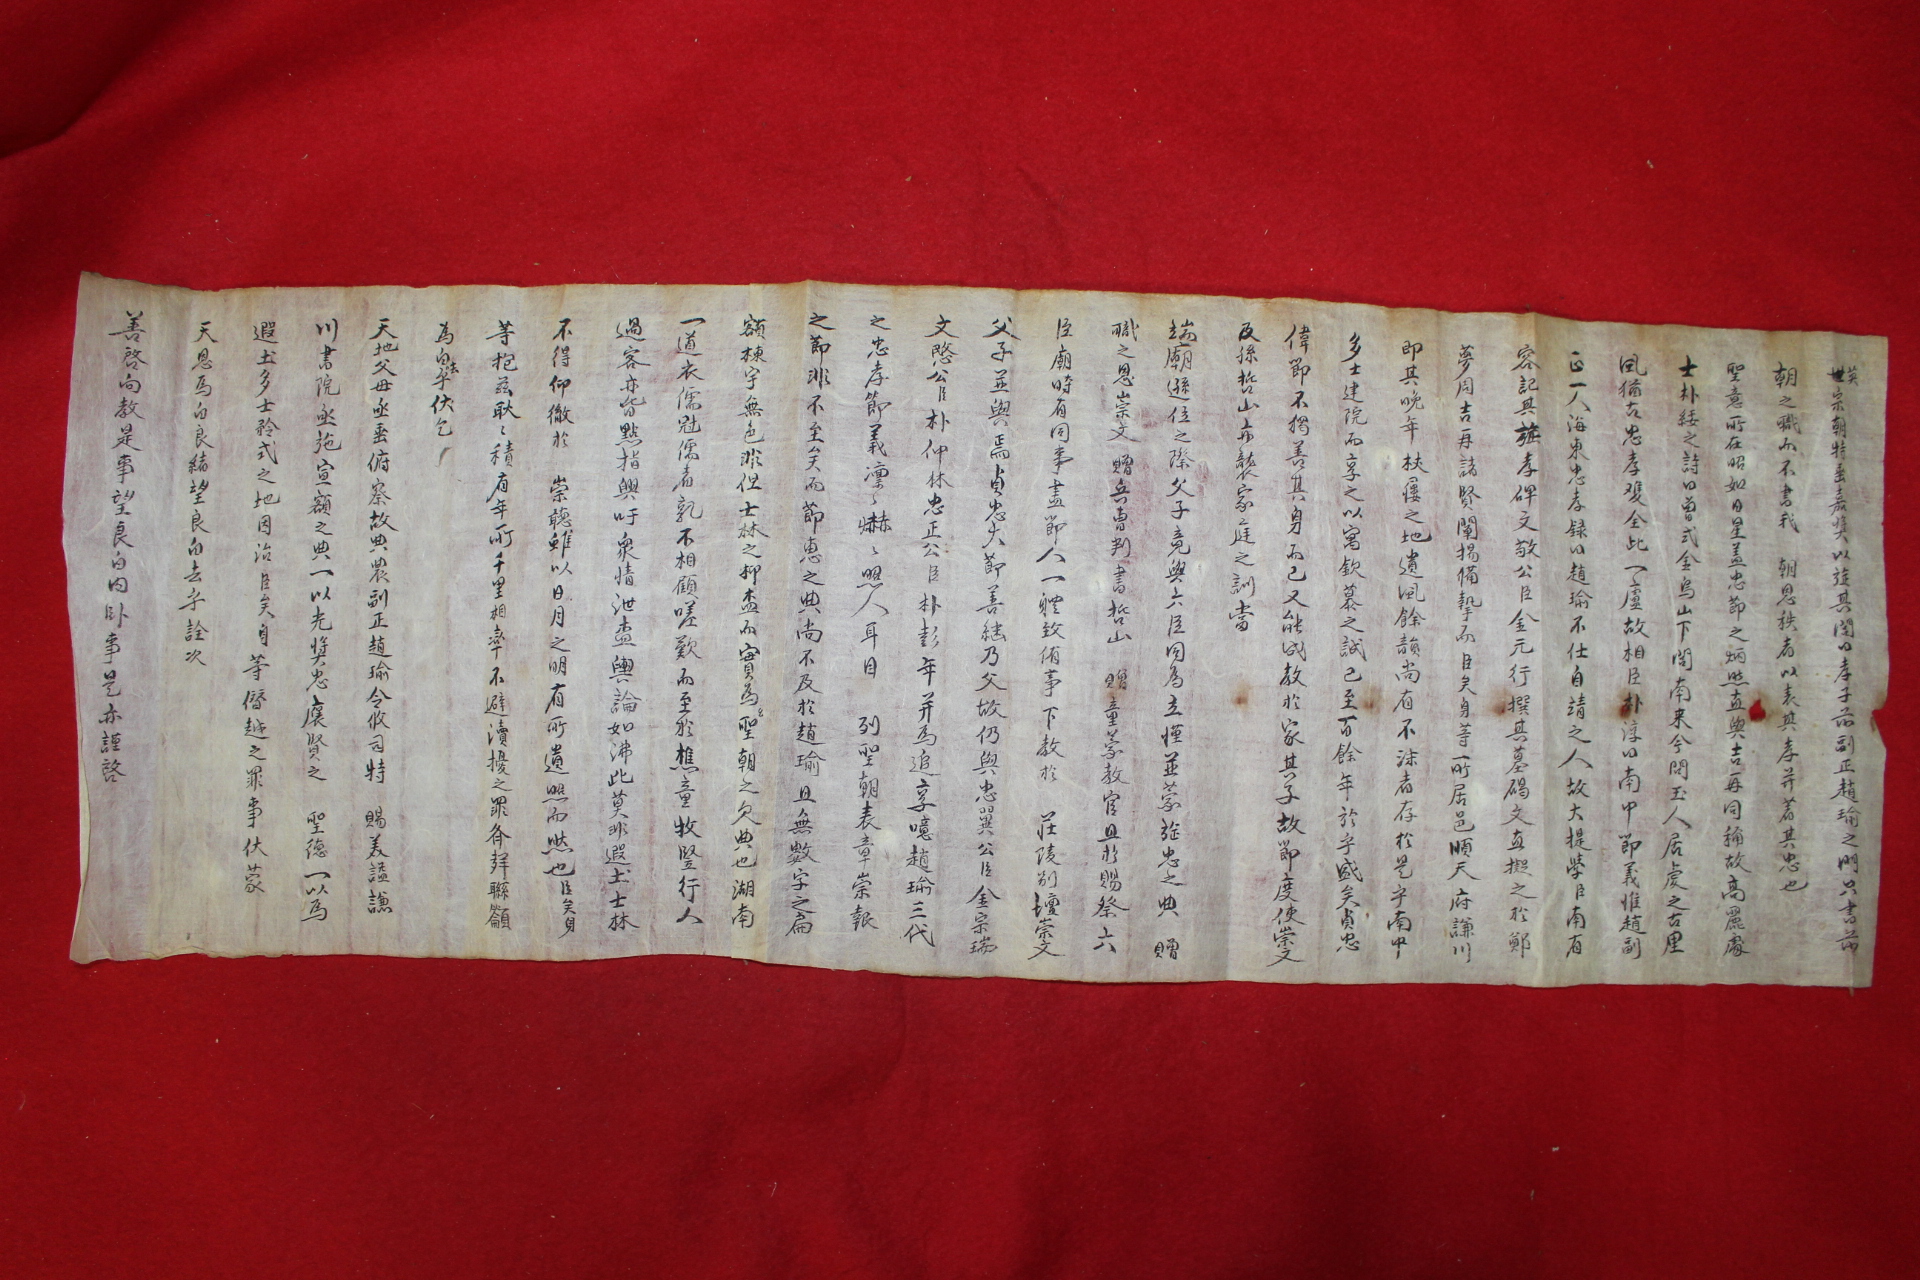 英
世宗朝特垂嘉奬以旌其閭曰孝子前副正趙瑜之門只書前
朝之職而不書我 朝恩秩者以表其孝并著其忠也
聖意所在昭如日星盖忠節之炳然直與吉再同稱故高麗處
士朴綏之詩曰曾式金烏山下閭南來今問玉人居處之古里
風猶古忠孝雙全此一廬故相臣朴淳曰南中節義惟趙副
正一人海東忠孝錄曰趙瑜不仕自靖之人故大提學臣南有
容記其旌孝碑文敬公臣金元行撰其墓碣文直擬之於鄭
夢周吉再諸賢闡揚備摯而臣矣身等所居邑順天府謙川
即其晩年杖屨之地遺風餘韻尚有不沫者存於是乎南中
多士建院而享之以寓欽慕之誠已至百餘年於乎盛矣貞忠
偉節不獨善其身而已又能成教於家其子故節度使崇文
及孫哲山亦襲家庭之訓當
端廟遜位之際父子竟與六臣同為立慬並蒙旌忠之典 贈
職之恩崇文 贈兵曹判書哲山 贈童蒙教官且於賜祭六
臣廟時有同事盡節人一體致侑事下教於 莊陵別壇崇文
父子並與焉貞忠大節善繼乃父故仍與忠翼公臣金宗瑞
文愍公臣朴仲林忠正公臣朴彭年并為追享噫趙瑜三代
之忠孝節義凛〻爀〻照人耳目 列聖朝表章崇報
之節非不至矣而節惠之典尚不及於趙瑜且無數字之扁
額棟宇無色非但士林之抑盍而實為聖朝之欠典也湖南
一道衣儒冠儒者孰不相顧嗟歎而至於樵童牧竪行人
過客亦皆點指興吁衆情泄盍輿論如沸此莫非遐土士林
不得仰徹於 崇聽雖以日月之明有所遺照而然也臣矣身
等抱玆耿〻積有年所千里相率不避瀆擾之罪齊聲聯籲
為白去乎伏乞
天地父母亟垂俯察故典農副正趙瑜令攸司特 賜美諡謙
川書院亟施宣額之典一以光奬忠襃賢之 聖德一以為
遐土多士矜式之地因治臣矣身等僭越之罪事伏蒙
天恩為白良結望良白去乎詮次
善啓向教是事望良白內臥事是亦謹啓